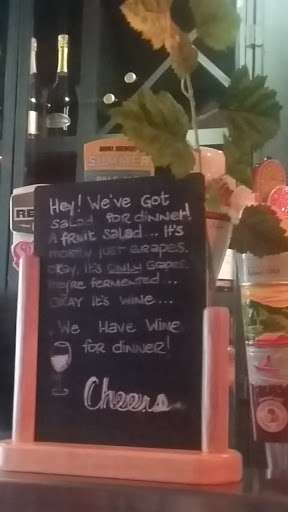 SUMMER
RE
Hey! We've Got
Salad for dinner!
A fruit salad... It's
mostly just grapes.
Okay, it's only grapes.
They're fermented...
Okay it's wine...
We Have Wine
for dinner!
Cheers